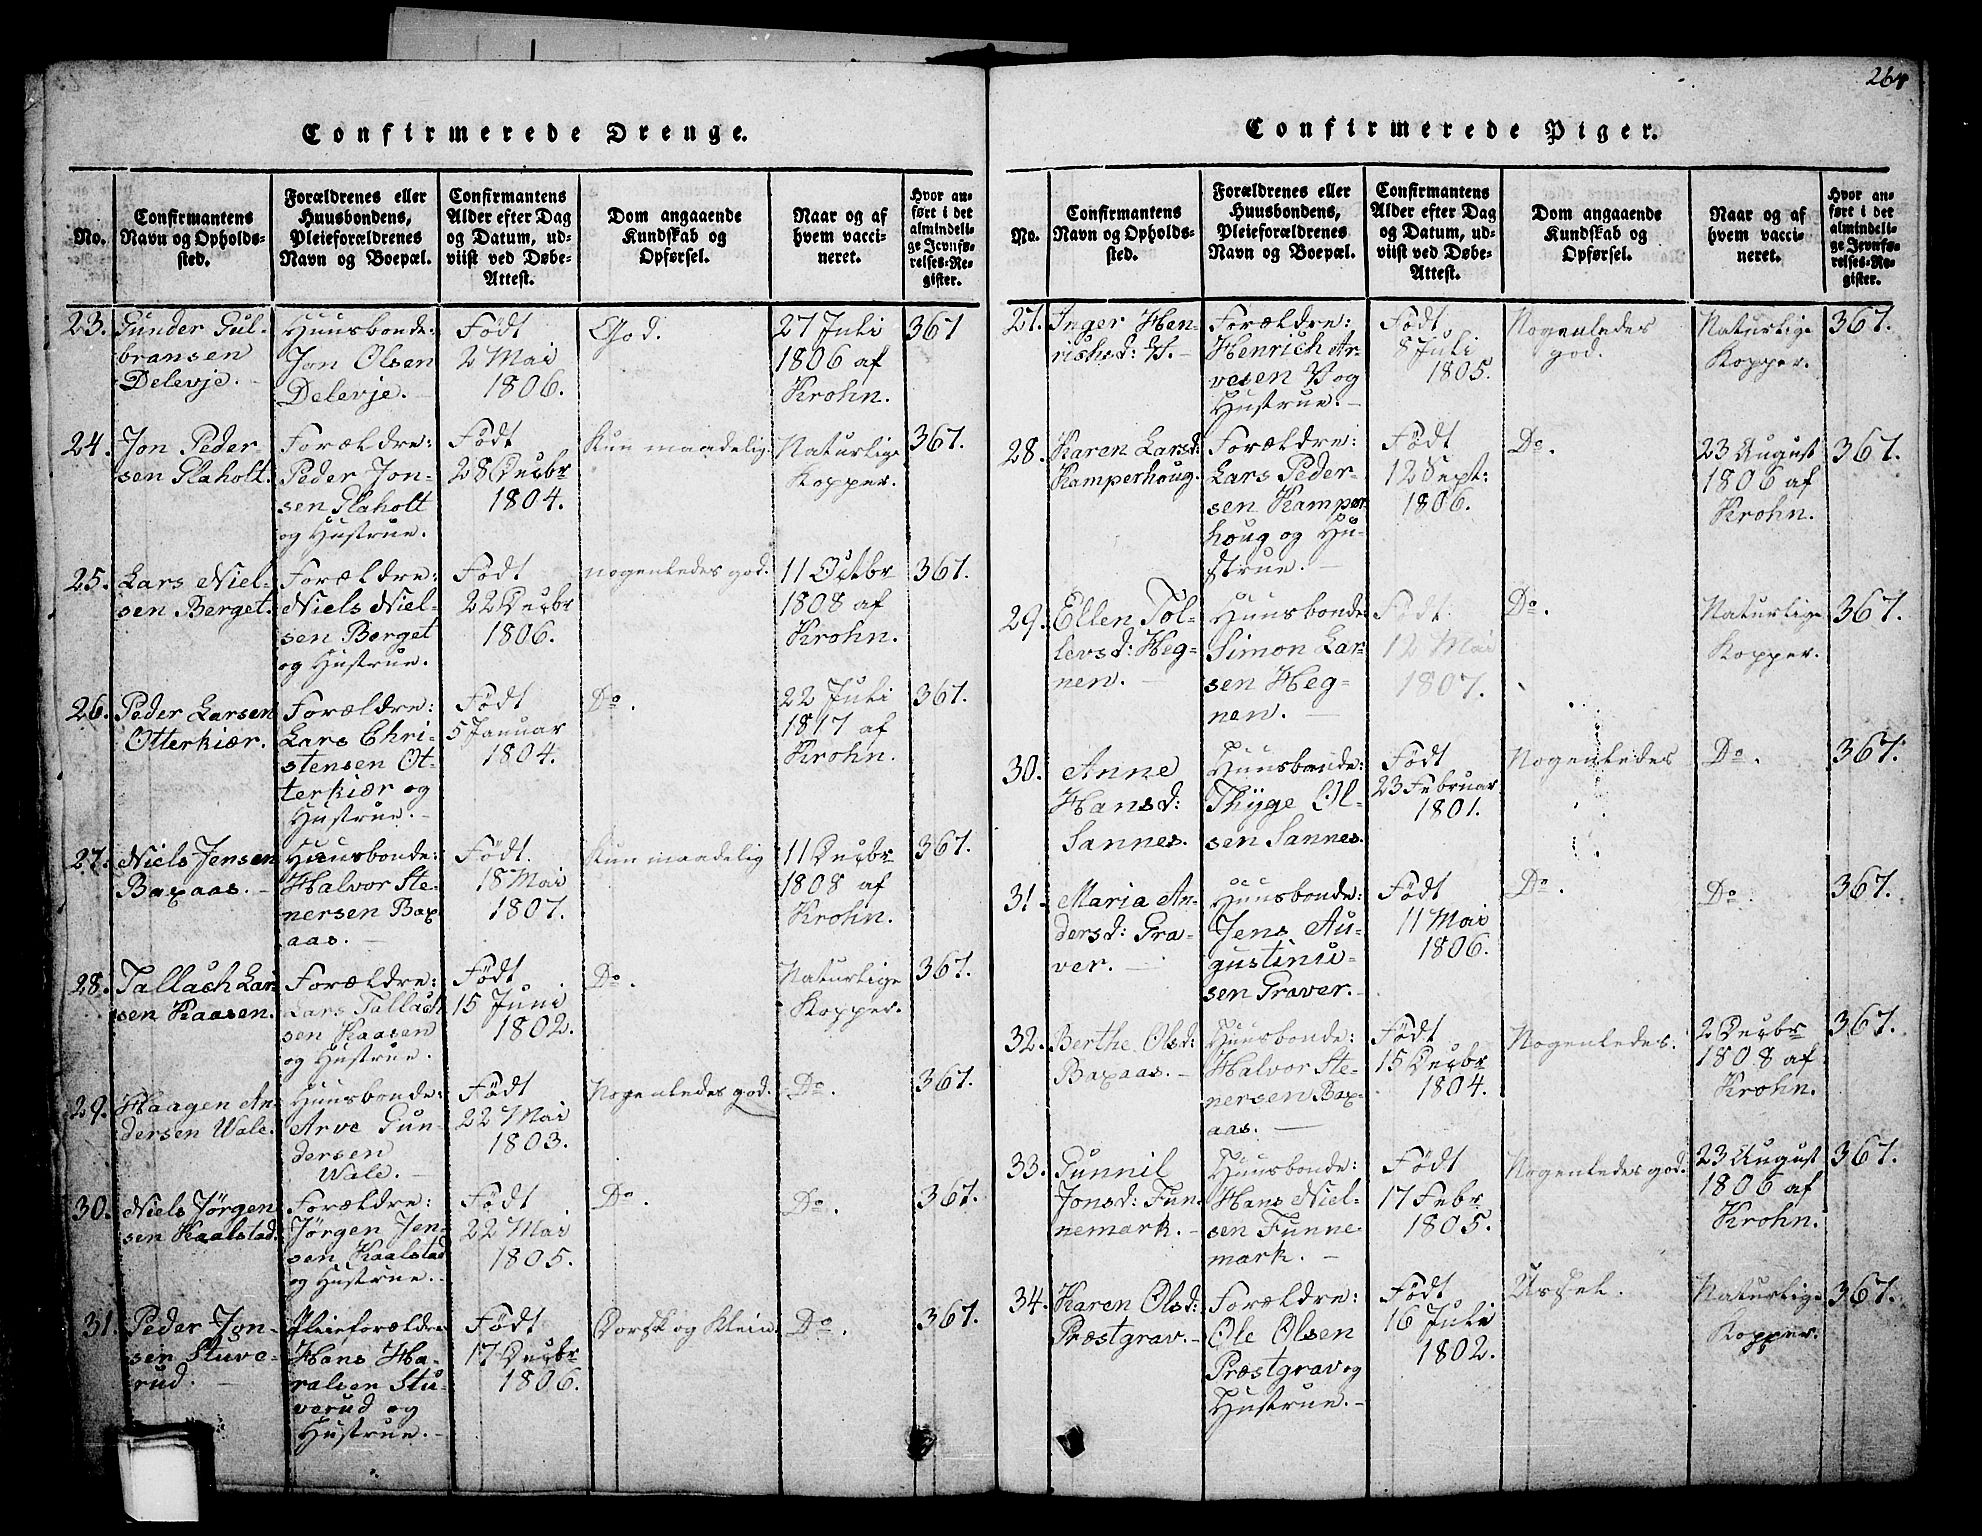 264
Confirmerede Drenge.
No.
Confirmantens
Navn og Opholds-
sted.
Forældrenes eller
Huusbondens,
Pleieforældrenes
Navn og Boepæl.
Confirmantens
Alder efter Dag
og Datum, ud-
viist ved Døbe-
Attest.
Dom angaaende
Kundskab og
Opførsel.
Naar og af
hvem vacci-
neret.
Hvor an-
ført i det
almindeli-
ge Jevnfø-
relses-Re-
gister.
23.
Gunder Gul-
bransen
Delevje.
Huusbonde:
Jon Olsen
Delevje.
Født
2 Mai
1806.
God.
27 Juli
1806 af
Krohn.
367
24.
Jon Peder-
sen Plaholt.
Forældre:
Peder Jon-
sen Plaholt
og Hustrue.
Født
28 Decbr
1804.
Kun maadelig.
Naturlige
Kopper.
367.
25.
Lars Niel-
sen Berget.
Forældre:
Niels Niel-
sen Berget
og Hustrue.
Født
22 Decbr
1806.
nogenledes god.
11 Octbr
1808 af
Krohn.
367.
26.
Peder Larsen
Otterkiær.
Forældre:
Lars Chri-
stensen Ot-
terkiær og
Hustrue.
Født
5 Januar
1804.
Do.
22 Juli
1817 af
Krohn.
367.
27.
Niels Jensen
Baxaas.
Huusbonde:
Halvor Ste-
nersen Bax
aas.
Født.
18 Mai
1807.
Kun maadelig
11 Decbr
1808 af
Krohn.
367.
28.
Tallach Lar-
sen Kaasen.
Forældre:
Lars Tallach
sen Kaasen
og Hustrue.
Født
15 Juni
1802.
Do.
Naturlige
Kopper.
367.
29.
Haagen An-
dersen Wale.
Huusbonde:
Arve Gun-
dersen
Wale.
Født
22 Mai
1803.
Nogenledes god.
Do.
367.
30.
Niels Jørgen
sen Kaalstad.
Forældre:
Jørgen Jen-
sen Kaalstad
og Hustrue.
Født
22 Mai
1805.
Do.
Do.
367.
31.
Peder Jon-
sen Stuve-
rud.
Pleieforældre
Hans Ha-
ralsen Stu-
verud og
Hustrue.
Født
17 Decbr
1806.
Dorsk og Klein.
Do.
367.
Confirmerede Piger.
No.
Confirmantens
Navn og Opholds-
sted.
Forældrenes eller
Huusbondens,
Pleieforældrenes
Navn og Boepæl.
Confirmantens
Alder efter Dag
og Datum, ud-
viist ved Døbe-
Attest.
Dom angaaende
Kundskab og
Opførsel.
Naar og af
hvem vacci-
neret.
Hvor an-
ført i det
almindeli-
ge Jevnfø-
relses-Re-
gister.
27.
Inger Hen-
Forældre:
Henrich Ar-
vesen og
Hustrue.
Født
8 Juli
1805.
Nogenledes
god.
Naturlige
Kopper.
367.
28.
Karen Larsd:
Kamperhoug.
Forældre:
Lars Peder-
sen Kamper
houg og Hu-
strue.
Født
12 Sept:
1806.
Do.
23 August
1806 af
Krohn.
367.
29.
Ellen Tol-
levsd: Heg-
nen.
Huusbonde
Simon Lar-
sen Heg-
nen.
Født
12 Mai
1807.
Do.
Naturlige
Kopper.
367.
30.
Anne
Hansd:
Sannes.
Huusbonde:
Thyge Ol-
sen Sannes.
Født
23 Februar
1801.
Nogenledes
Do.
367.
31.
Maria An-
dersd: Gra-
ver.
Huusbonde:
Jens Au-
gustinu-
sen Graver.
Født
11 Mai
1806.
Do.
Do.
367.
32.
Berthe Olsd:
Baxaas.
Huusbonde:
Halvor Ste-
nersen Bax-
aas.
Født
15 Decbr
1804.
Nogenledes.
2 Decbr
1808 af
Krohn.
367.
33.
Gunnil
Jonsd: Fun-
nemark.
Huusbonde:
Hans Niel-
sen Funne-
mark.
Født
17 Febr
1805.
Nogenledes god.
23 August
1806 af
Krohn.
367.
34.
Karen Olsd:
Præstgrav.
Forældre:
Ole Olsen
Præstgrav og
Hustrue.
Født
16 Juli
1802.
Ussel.
Naturlige
Kopper.
367.